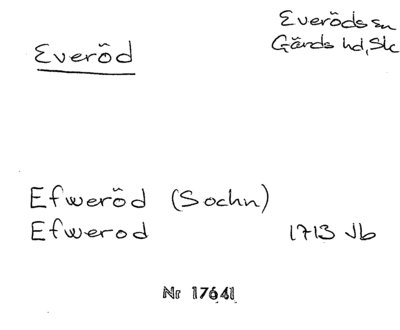 Everöd
Everöds sn
Gärds hd, Sk
Efweröd (Sochn)
Efwerod 1713 Jb
Nr 17641